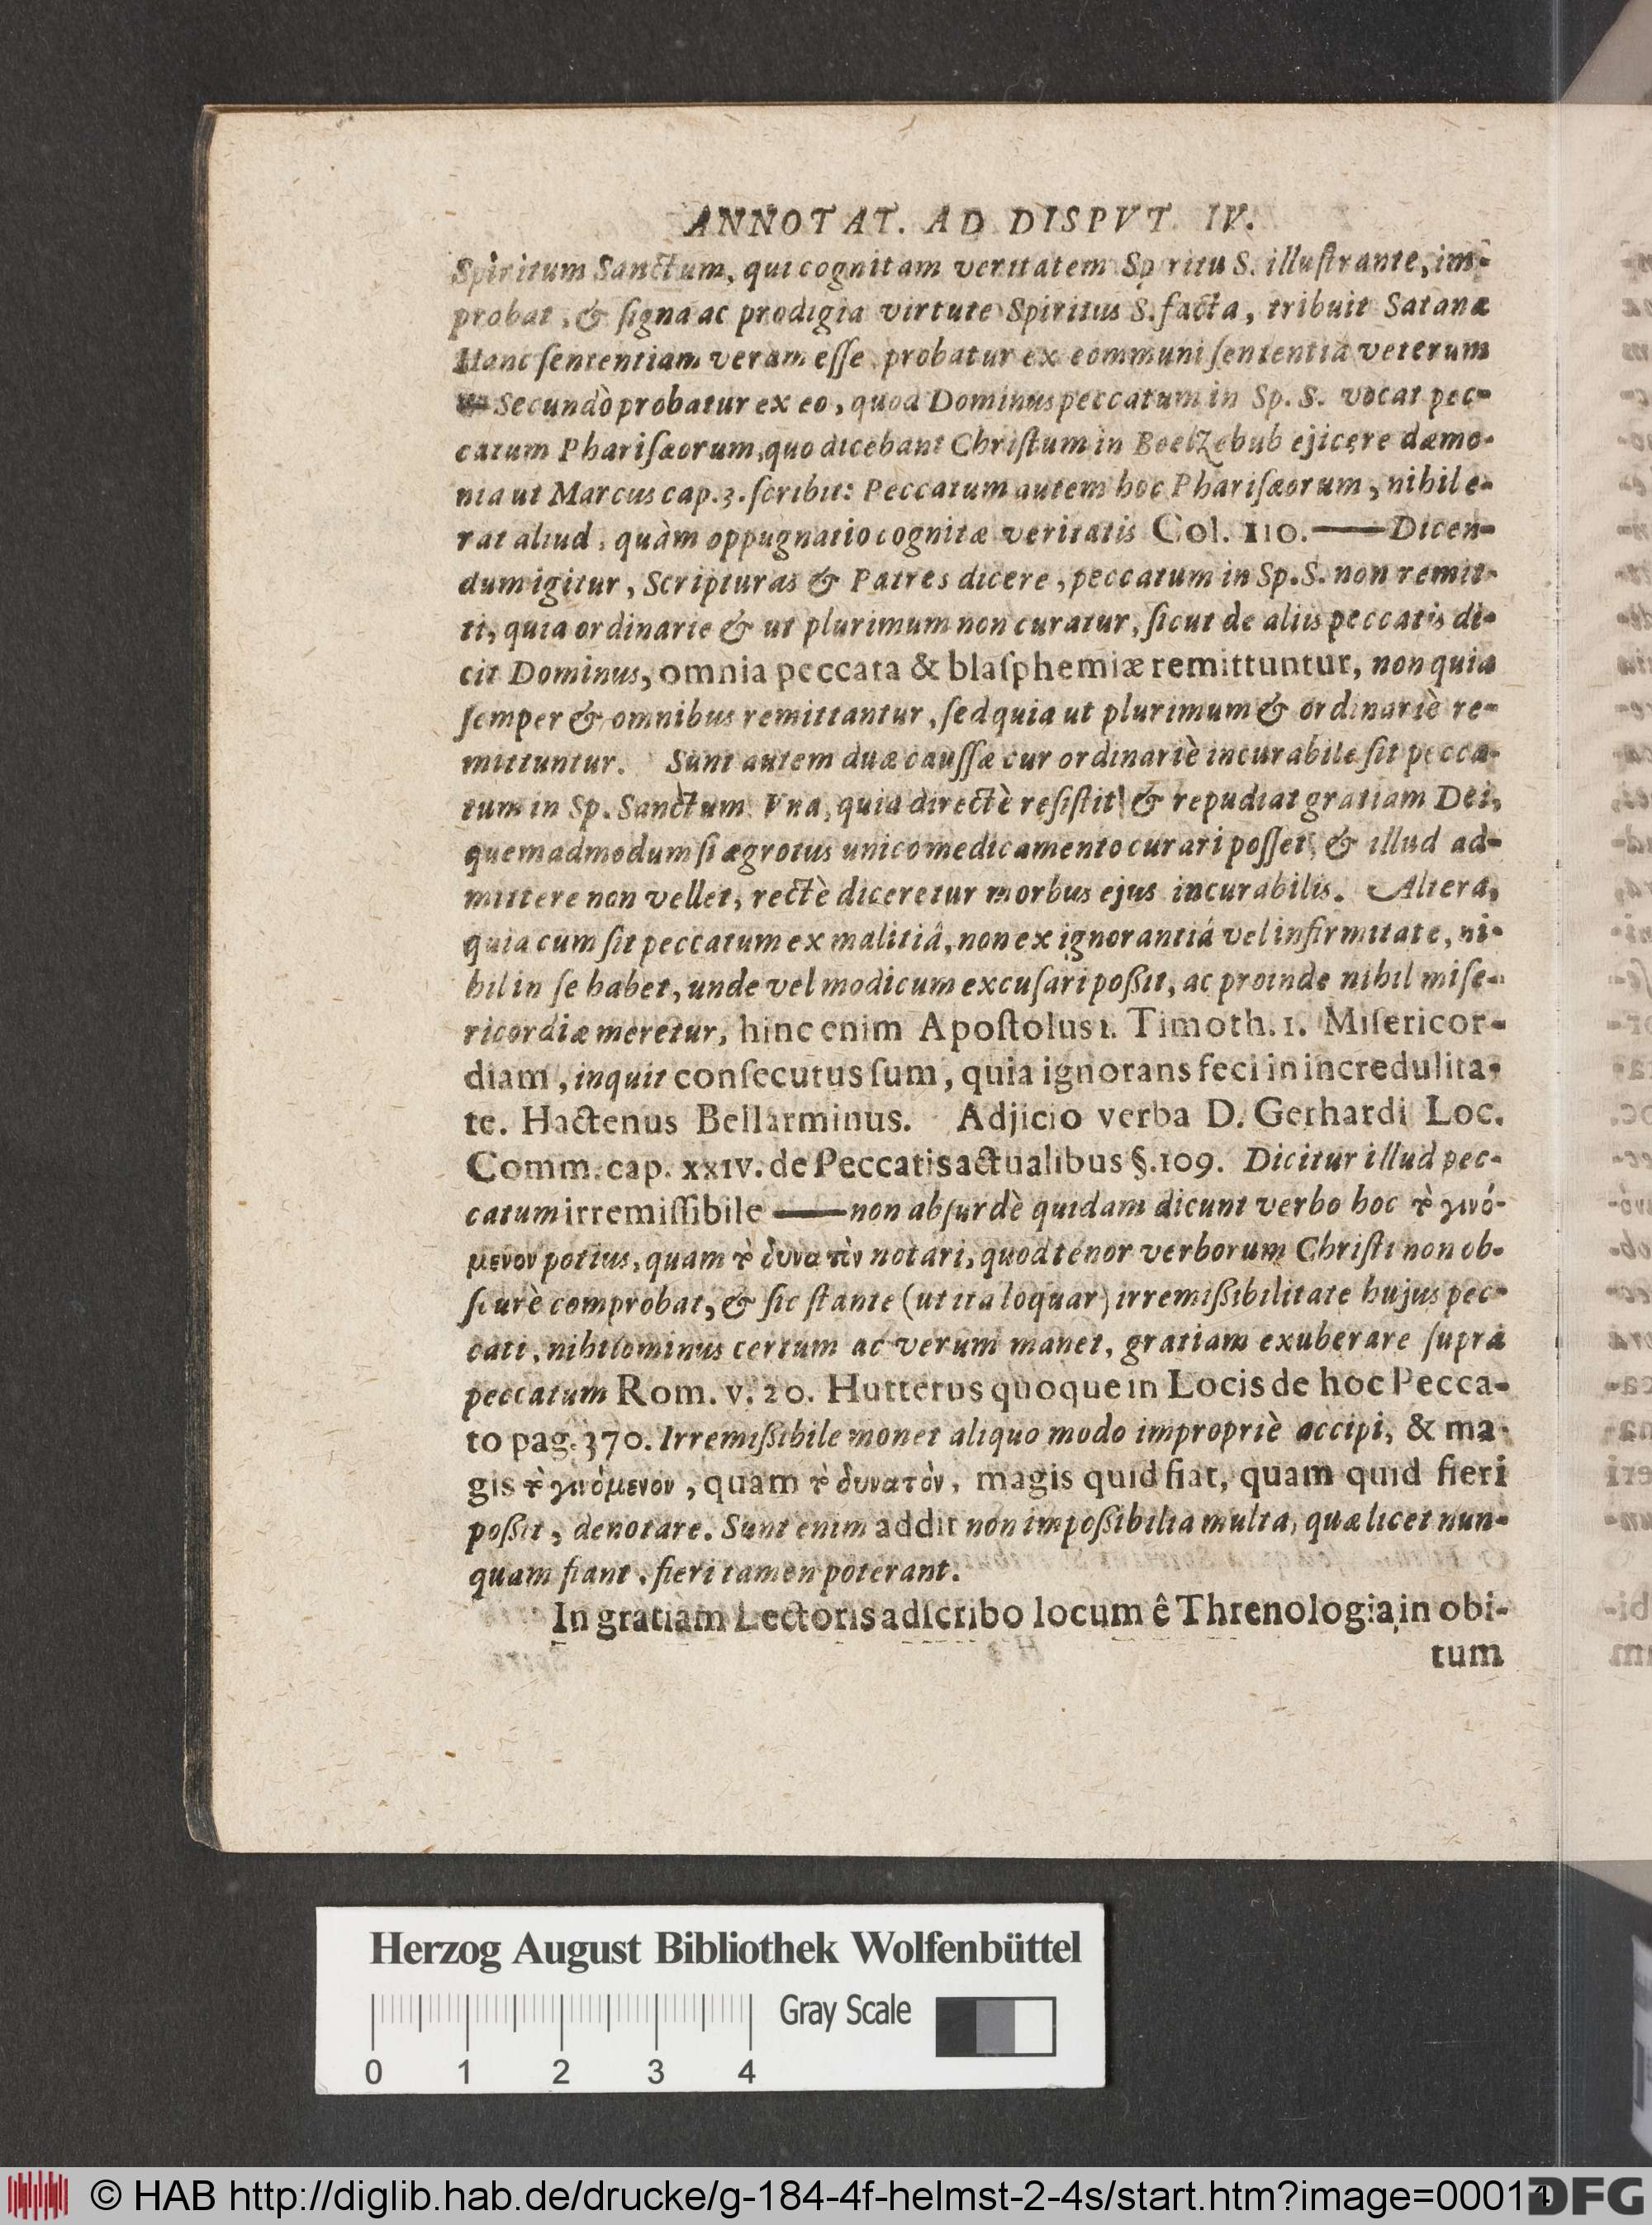 ANNOTAT. AD DISPVT. IV.
Spiritum Sanctum, qui cognitam veritatem Spiritu S. illuſtrante, im-
probat, & ſigna ac prodigia virtute Spiritus S. facta, tribuit Satanæ
Hanc ſententiam veram eſſe, probatur ex communi ſententia veterum
— Secundò probatur ex eo, quod Dominus peccatum in Sp. S. vocat pec-
catum Phariſæorum, quo dicebant Chriſtum in Beelzebub ejicere dæmo-
nia ut Marcus cap. 3. ſcribit: Peccatum autem hoc Phariſæorum, nihil e-
rat aliud, quàm oppugnatio cognitæ veritatis Col. 110. — Dicen-
dum igitur, Scripturas & Patres dicere, peccatum in Sp. S. non remit-
ti, quia ordinarie & ut plurimum non curatur, ſicut de aliis peccatis di-
cit Dominus, omnia peccata & blaſphemiæ remittuntur, non quia
ſemper & omnibus remittantur, ſed quia ut plurimum & ordinariè re-
mittuntur. Sunt autem duæ cauſſæ cur ordinariè incurabile ſit pecca-
tum in Sp. Sanctum. Vna, quia directè reſiſtit & repudiat gratiam Dei,
quemadmodum ſi ægrotus unico medicamento curari poſſet, & illud ad-
mittere non vellet, rectè diceretur morbus ejus incurabilis. Altera,
quia cum ſit peccatum ex malitiâ, non ex ignorantiâ vel infirmitate, ni-
hil in ſe habet, unde vel modicum excuſari poßit, ac proinde nihil miſe-
ricordiæ meretur, hinc enim Apoſtolus 1. Timoth. 1. Miſericor-
diam, inquit conſecutus ſum, quia ignorans feci in incredulita-
te. Hactenus Bellarminus. Adjicio verba D. Gerhardi Loc.
Comm. cap. xxiv. de Peccatis actualibus §. 109. Dicitur illud pec-
catum irremiſſibile — non abſurdè quidam dicunt verbo hoc τὸ γινό-
μενον potius, quam τὸ δυνατὸν notari, quod tenor verborum Chriſti non ob-
ſcurè comprobat, & ſic ſtante (ut ita loquar) irremißibilitate hujus pec-
cati, nihilominus certum ac verum manet, gratiam exuberare ſupra
peccatum Rom. v. 20. Hutterus quoque in Locis de hoc Pecca-
to pag. 370. Irremißibile monet aliquo modo impropriè accipi, & ma-
gis τὸ γινόμενον, quam τὸ δυνατὸν, magis quid fiat, quam quid fieri
poßit, denotare. Sunt enim addit non impoßibilia multa, quæ licet nun-
quam fiant, fieri tamen poterant.
In gratiam Lectoris adſcribo locum ê Threnologia in obi-
tum
Herzog August Bibliothek Wolfenbüttel
Gray Scale
0 1 2 3 4
© HAB http://diglib.hab.de/drucke/g-184-4f-helmst-2-4s/start.htm?image=00014
DFG